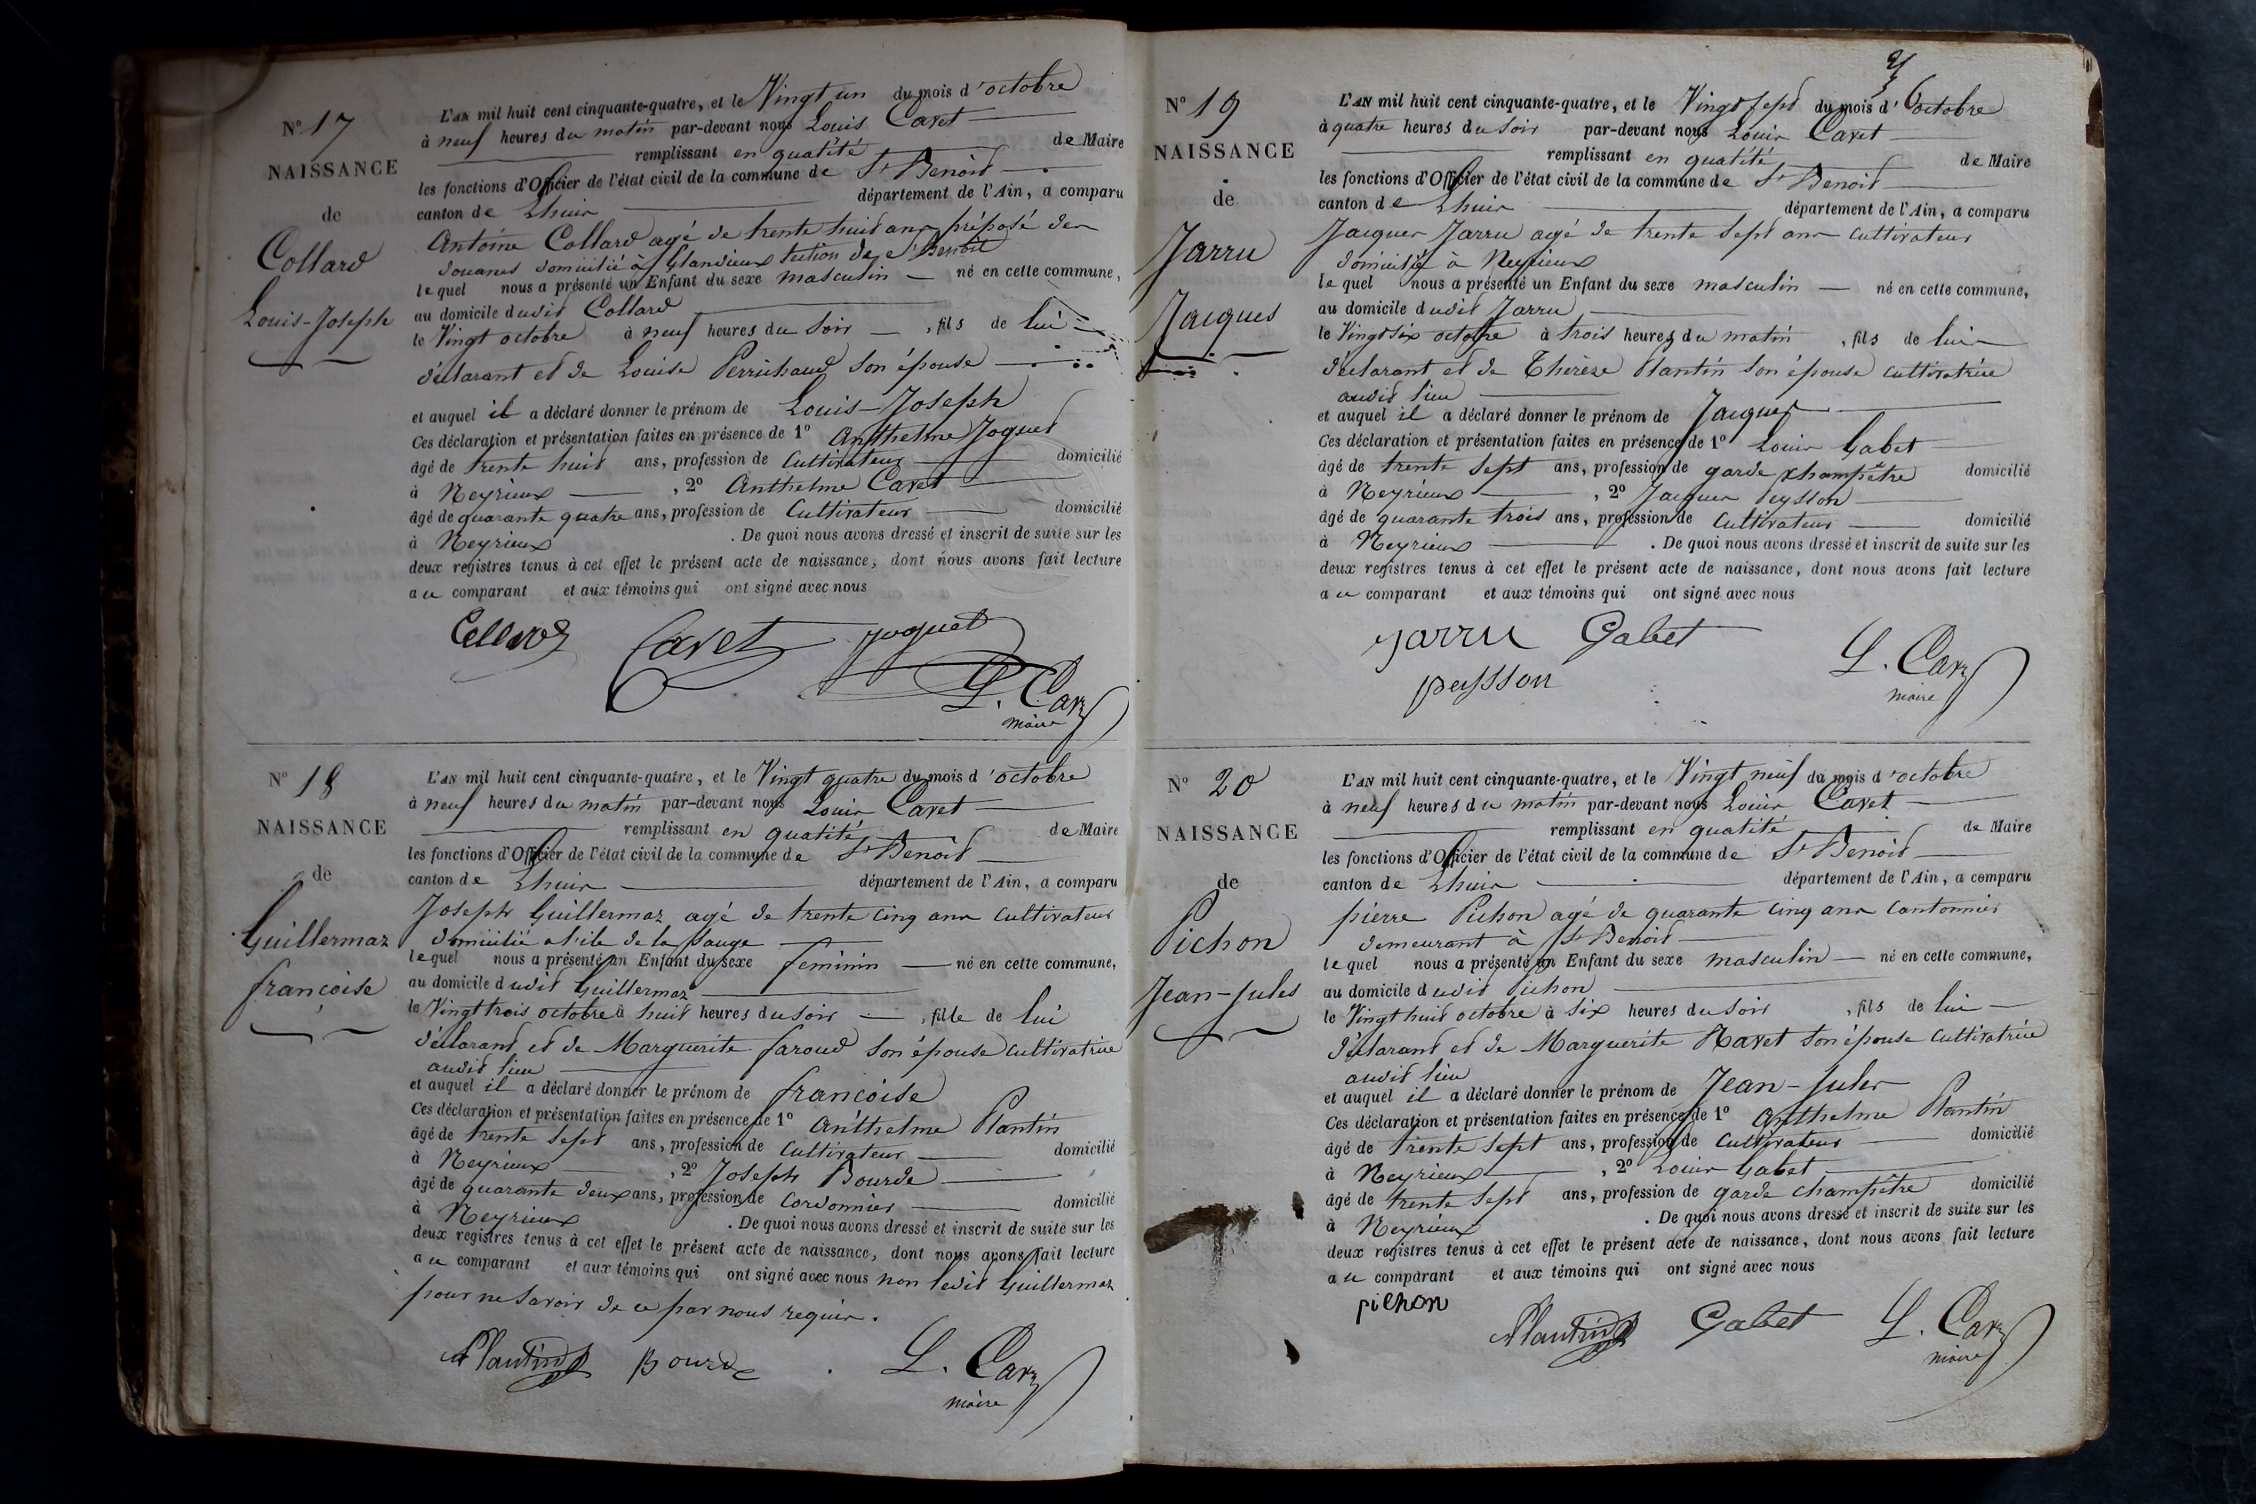 N° 17
NAISSANCE
de
Collard
Louis-Joseph
L'AN mil huit cent cinquante-quatre, et le Vingt un du mois d'octobre
à neuf heures du matin par-devant nous Louis Cavet
remplissant en qualité de Maire
les fonctions d'Officier de l'état civil de la commune de St Benoit
canton de Lhuis département de l'Ain, a comparu
Antoine Collard agé de trente huit ans préposé des
douanes domicilié à Glandieux section de St Benoit
lequel nous a présenté un Enfant du sexe masculin né en cette commune,
au domicile dudit Collard
le Vingt octobre à neuf heures du Soir, fils de lui
déclarant et de Louise Perrichaud son épouse
et auquel il a déclaré donner le prénom de Louis-Joseph
Ces déclaration et présentation faites en présence de 1° Anthelme Joguet
âgé de trente huit ans, profession de Cultivateur domicilié
à Neyrieux, 2° Anthelme Cavet
âgé de quarante quatre ans, profession de Cultivateur domicilié
à Neyrieux. De quoi nous avons dressé et inscrit de suite sur les
deux registres tenus à cet effet le présent acte de naissance, dont nous avons fait lecture
au comparant et aux témoins qui ont signé avec nous
Collard Cavet Joguet
L. Cavet
maire
N° 18
NAISSANCE
de
Guillermaz
françoise
L'AN mil huit cent cinquante-quatre, et le Vingt quatre du mois d'octobre
à neuf heures du matin par-devant nous Louis Cavet
remplissant en qualité de Maire
les fonctions d'Officier de l'état civil de la commune de St Benoit
canton de Lhuis département de l'Ain, a comparu
Joseph Guillermaz agé de trente cinq ans cultivateur
domicilié a l'ile de la Sauge
lequel nous a présenté un Enfant du sexe feminin né en cette commune,
au domicile dudit Guillermaz
le Vingt trois octobre à huit heures du Soir, fille de lui
déclarant et de Marguerite faroud son épouse Cultivatrice
audit lieu
et auquel il a déclaré donner le prénom de françoise
Ces déclaration et présentation faites en présence de 1° Anthelme Plantin
âgé de trente Sept ans, profession de Cultivateur domicilié
à Neyrieux, 2° Joseph Bourde
âgé de quarante deux ans, profession de Cordonnier domicilié
à Neyrieux. De quoi nous avons dressé et inscrit de suite sur les
deux registres tenus à cet effet le présent acte de naissance, dont nous avons fait lecture
au comparant et aux témoins qui ont signé avec nous non ledit Guillermaz
pour ne Savoir de ce par nous requis.
Plantin Bourde L. Cavet
maire
N° 19
NAISSANCE
de
Jarru
Jacques
L'AN mil huit cent cinquante-quatre, et le Vingt Sept du mois d'octobre
à quatre heures du Soir par-devant nous Louis Cavet
remplissant en qualité de Maire
les fonctions d'Officier de l'état civil de la commune de St Benoit
canton de Lhuis département de l'Ain, a comparu
Jacques Jarru agé de trente Sept ans cultivateur
domicilié à Neyrieux
lequel nous a présenté un Enfant du sexe masculin né en cette commune,
au domicile dudit Jarru
le Vingt Six octobre à trois heures du matin, fils de lui
déclarant et de Thérèse Plantin Son épouse cultivatrice
audit lieu
et auquel il a déclaré donner le prénom de Jacques
Ces déclaration et présentation faites en présence de 1° Louis Gabet
âgé de trente Sept ans, profession de garde champêtre domicilié
à Neyrieux, 2° Jacques Peysson
âgé de quarante trois ans, profession de Cultivateur domicilié
à Neyrieux. De quoi nous avons dressé et inscrit de suite sur les
deux registres tenus à cet effet le présent acte de naissance, dont nous avons fait lecture
au comparant et aux témoins qui ont signé avec nous
Jarru Gabet
L. Cavet
peysson
maire
N° 20
NAISSANCE
de
Pichon
Jean-Jules
L'AN mil huit cent cinquante-quatre, et le Vingt neuf du mois d'octobre
à neuf heures du matin par-devant nous Louis Cavet
remplissant en qualité de Maire
les fonctions d'Officier de l'état civil de la commune de St Benoit
canton de Lhuis département de l'Ain, a comparu
pierre Pichon agé de quarante cinq ans Cantonnier
demeurant à St Benoit
lequel nous a présenté un Enfant du sexe masculin né en cette commune,
au domicile dudit Pichon
le Vingt huit octobre à Six heures du Soir, fils de lui
déclarant et de Marguerite Navet son épouse Cultivatrice
audit lieu
et auquel il a déclaré donner le prénom de Jean-Jules
Ces déclaration et présentation faites en présence de 1° Anthelme Plantin
âgé de trente Sept ans, profession de Cultivateur domicilié
à Neyrieux, 2° Louis Gabet
âgé de trente Sept ans, profession de garde champêtre domicilié
à Neyrieux. De quoi nous avons dressé et inscrit de suite sur les
deux registres tenus à cet effet le présent acte de naissance, dont nous avons fait lecture
au comparant et aux témoins qui ont signé avec nous
pichon
Plantin Gabet L. Cavet
maire